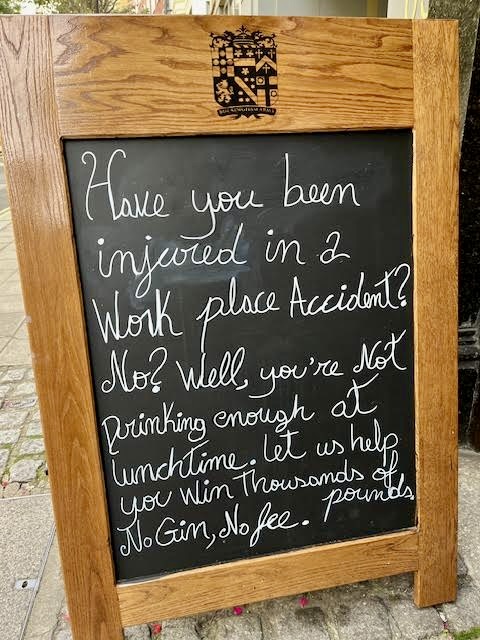 Have you been
injured in a
Work place Accident?
No? Well, you're Not
Drinking enough at
lunchtime. let us help
you Win Thousands of
pounds.
No Gin, No fee.